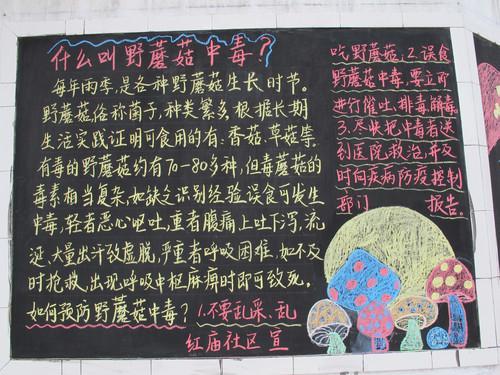 什么叫野蘑菇中毒？
每年雨季，是各种野蘑菇生长时节。
野蘑菇俗称菌子，种类繁多，根据长期
生活实践证明可食用的有：香菇、草菇等，
有毒的野蘑菇约有70—80多种，但毒蘑菇的
毒素相当复杂，如缺乏识别经验误食可发生
中毒，轻者恶心呕吐，重者腹痛上吐下泻，流
涎、大量出汗致虚脱，严重者呼吸困难，如不及
时抢救，出现呼吸中枢麻痹时即可致死。
如何预防野蘑菇中毒？1.不要乱采、乱
吃野蘑菇；2.误食
野蘑菇中毒，要立即
进行催吐、排毒、解毒。
3.尽快把中毒者送
到医院救治，并及
时向疾病防疫控制
部门报告。
红庙社区宣